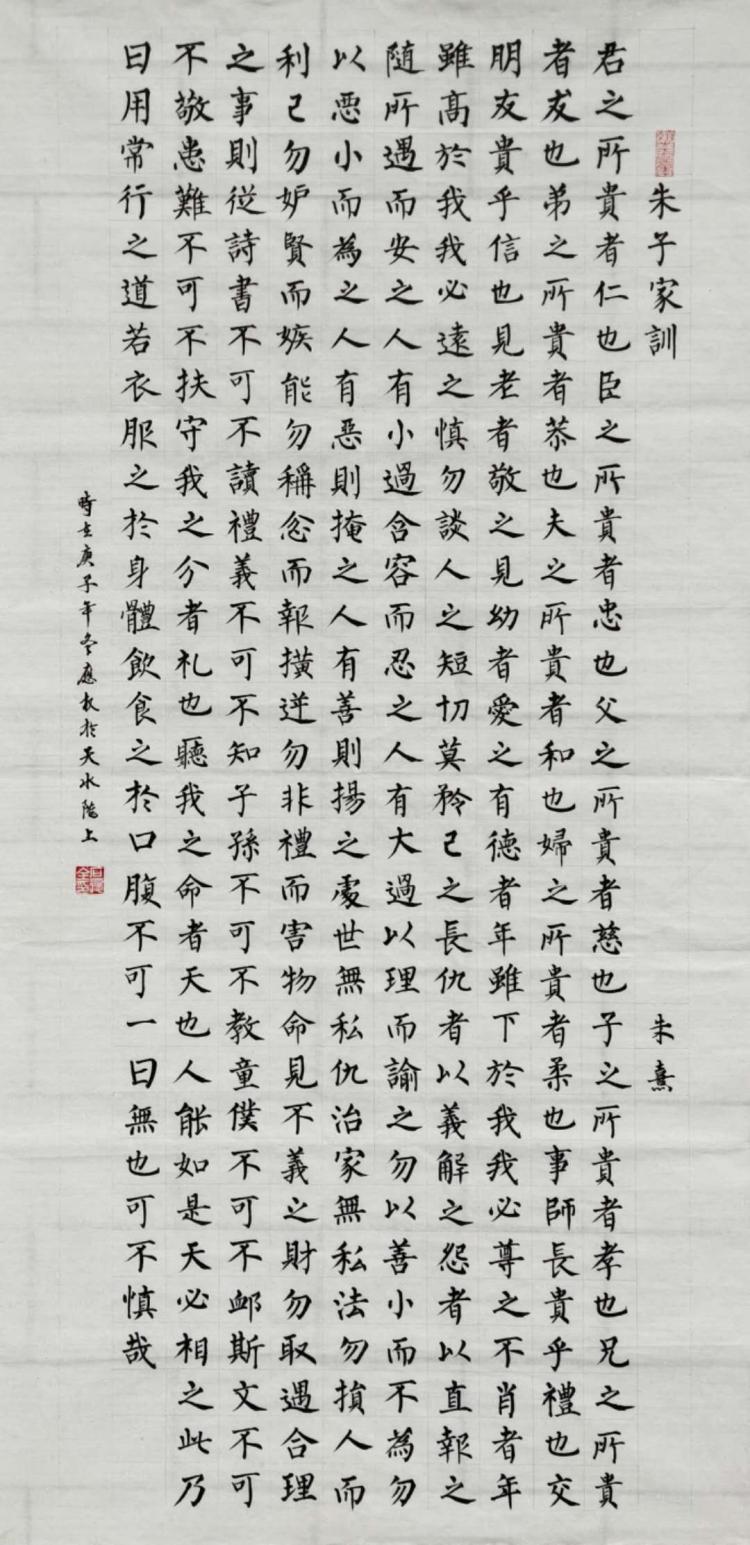 朱子家訓 朱熹
君之所貴者仁也臣之所貴者忠也父之所貴者慈也子之所貴者孝也兄之所貴
者友也弟之所貴者恭也夫之所貴者和也婦之所貴者柔也事師長貴乎禮也交
朋友貴乎信也見老者敬之見幼者愛之有德者年雖下於我我必尊之不肖者年
雖高於我我必遠之慎勿談人之短切莫矜己之長仇者以義解之怨者以直報之
隨所遇而安之人有小過含容而忍之人有大過以理而諭之勿以善小而不為勿
以惡小而為之人有惡則掩之人有善則揚之處世無私仇治家無私法勿損人而
利己勿妒賢而嫉能勿稱忿而報橫逆勿非禮而害物命見不義之財勿取遇合理
之事則從詩書不可不讀禮義不可不知子孫不可不教童僕不可不卹斯文不可
不敬患難不可不扶守我之分者礼也聽我之命者天也人能如是天必相之此乃
日用常行之道若衣服之於身體飲食之於口腹不可一日無也可不慎哉
時在庚子年冬應牧於天水隴上